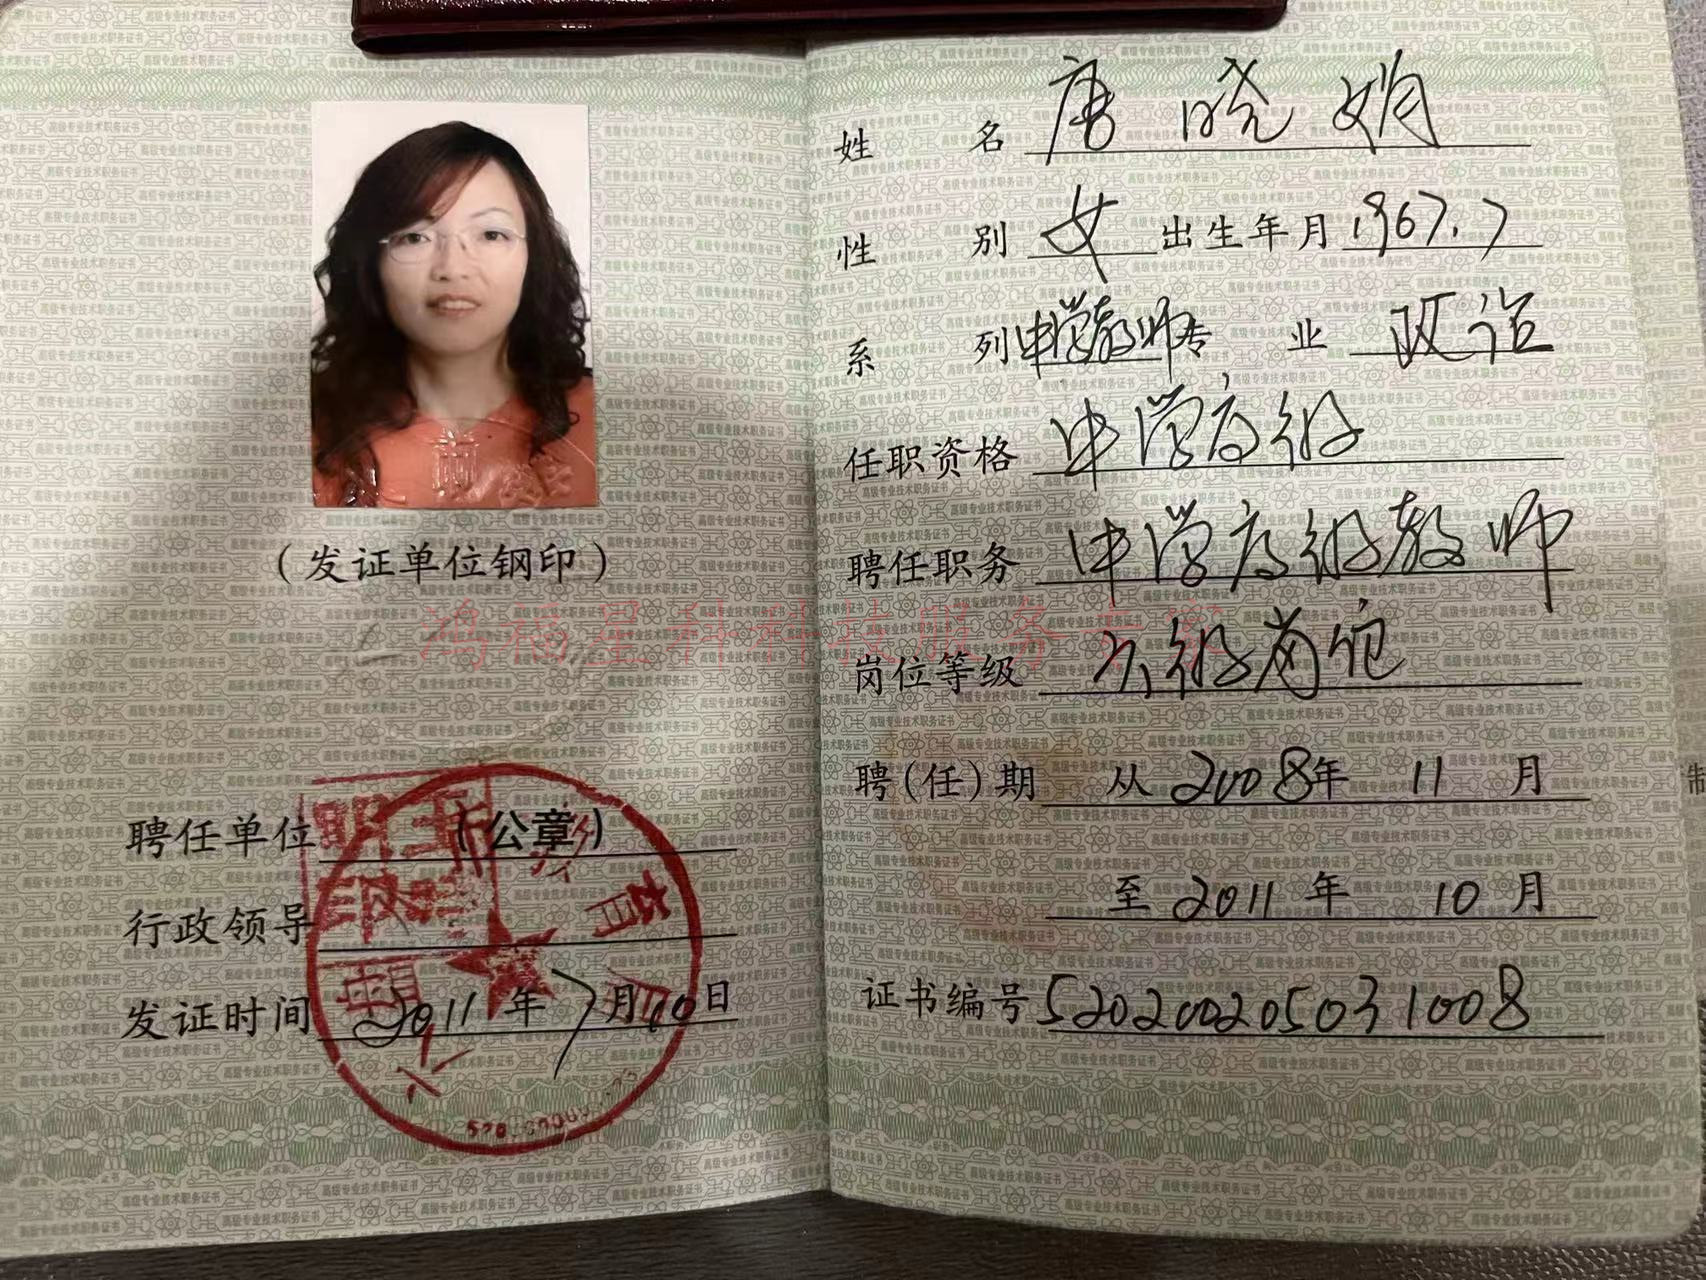 （发证单位钢印）
聘任单位（公章）
行政领导
发证时间 2011年7月10日
姓名 唐晓娟
性别 女 出生年月 1967.7
系列 中学教师 专业 政治
任职资格 中学高级
聘任职务 中学高级教师
岗位等级 六级岗位
聘（任）期 从2008年11月
至2011年10月
证书编号 52020020503 1008
鸿福星科技服务